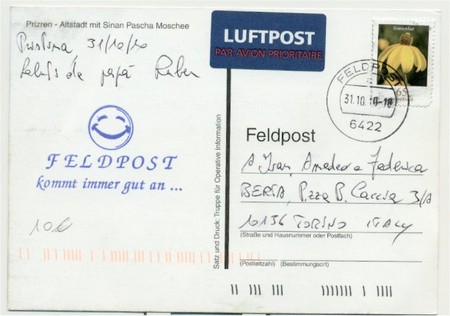 Prizren - Altstadt mit Sinan Pascha Moschee
Pristina 31/10/10
Saluti da papà Ruben
FELDPOST
kommt immer gut an ...
10€
Satz und Druck: Truppe für Operative Information
LUFTPOST
PAR AVION PRIORITAIRE
FELDPOST
31.10.10-18
6422
65
Feldpost
A Ivan, Amedeo e Federica
BERTA, P.zza B. Cairoli 3/A
10136 TORINO ITALY
(Straße und Hausnummer oder Postfach)
(Postleitzahl) (Bestimmungsort)